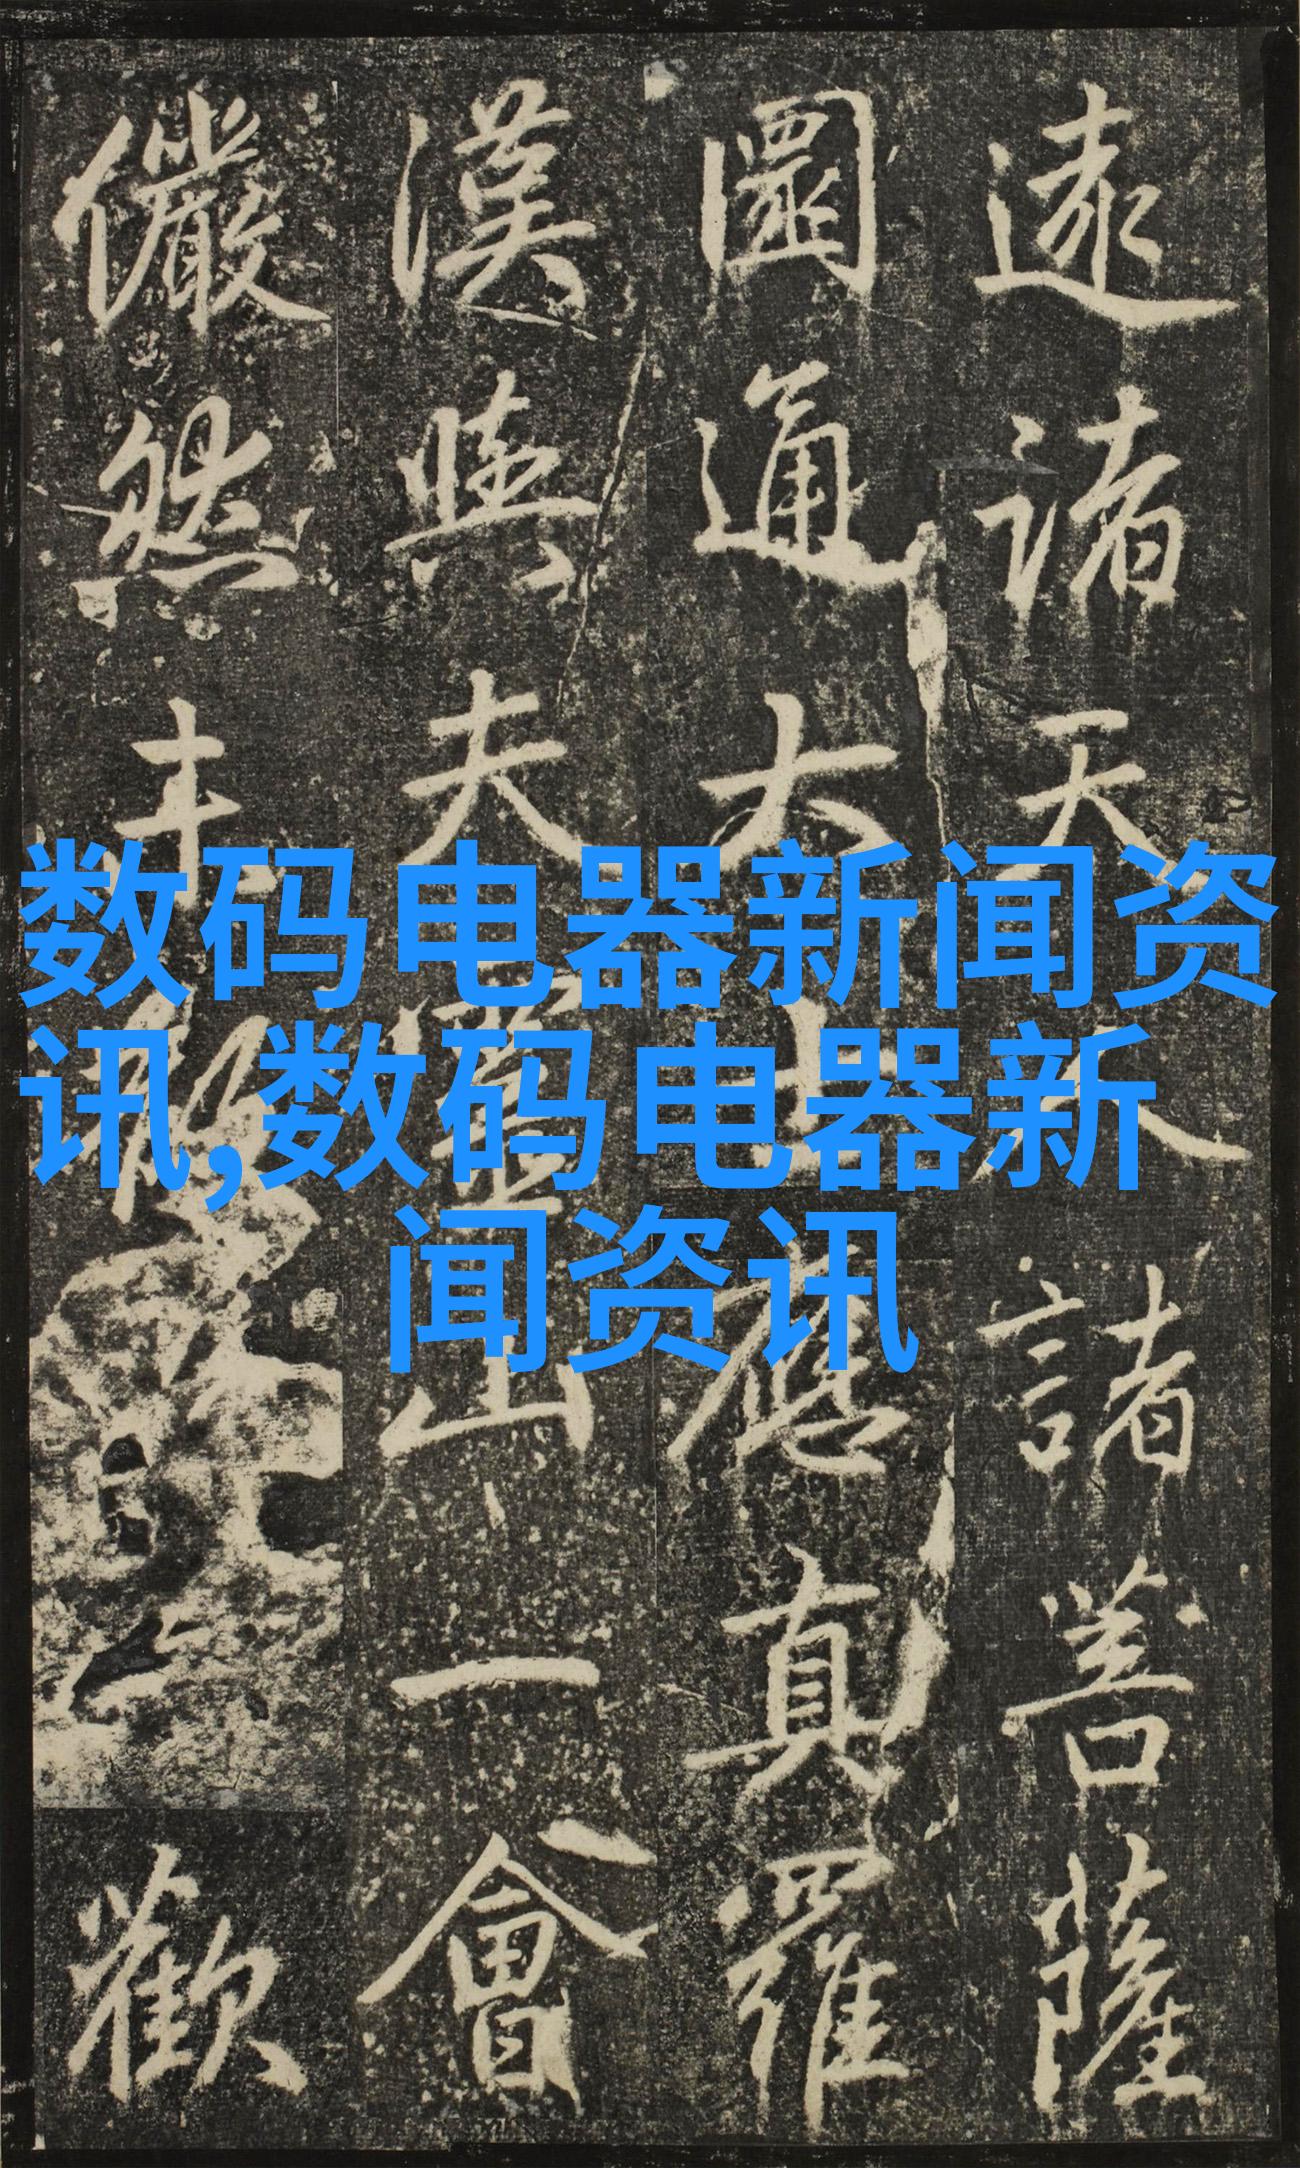 遠諸天人諸菩薩
圜通大士應真羅
漢與夫靈山一會
儼然未散歡
数码电器新闻资
讯,数码电器新
闻资讯